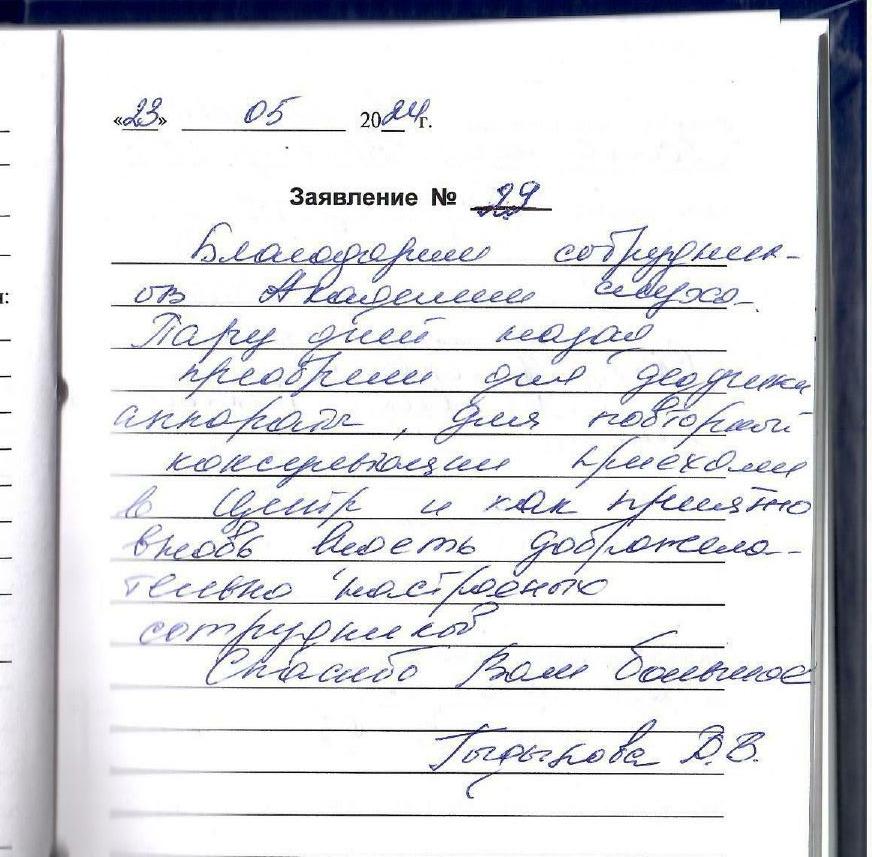 «23» 05 2024 г.
Заявление № 29
Благодарим сотрудник-
ов Академии слуха.
Пару дней назад
приобрели для дедушки
аппараты, для повторной
консультации приехали
в Центр и как приятно
вновь видеть доброжела-
тельно настроеных
сотрудников
Спасибо Вам большое
Гыдыкова В.В.